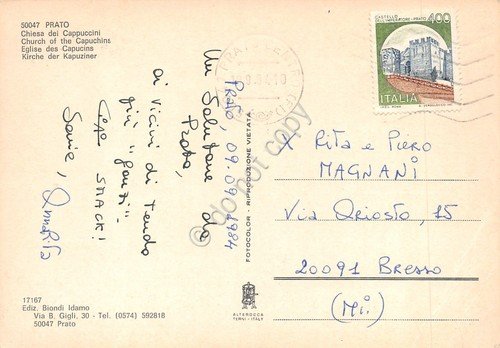 50047 PRATO
Chiesa dei Cappuccini
Church of the Capuchins
Eglise des Capucins
Kirche der Kapuziner
Prato, 09.09.1984
Un Salutone da
Prato,
ai vicini di tenda
più "ganzi".
SMACK!
Sonie, Annarita
17167
Ediz. Biondi Idamo
Via B. Gigli, 30 - Tel. (0574) 592818
50047 Prato
FOTOCOLOR - RIPRODUZIONE VIETATA
ALTEROCCA
TERNI - ITALY
CASTELLO
DELL'IMPERATORE - PRATO
400
ITALIA
X Rita e Piero
MAGNANI
Via Ariosto, 15
20091 Bresso
(Mi)
do not copy